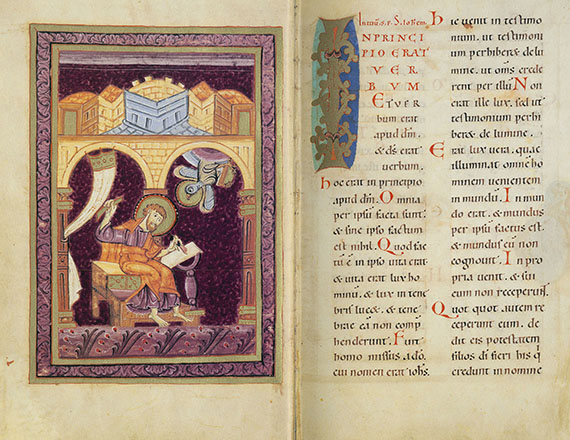 IN PRINCI
PIO ERAT
VER
BUM
ET UER
bum erat
apud dm̄.
& ds̄ erat
uerbum.
hoc erat in principio
apud dm̄. Omnia
per ipsū facta sunt
& sine ipso factum
est nihil. Quod fac
tū ē in ipso uita erat
& uita erat lux ho
minū. & lux in tene
bris luc&. & tene
brae ea non comp
henderunt. Fuit
homo missus a dō.
cui nomen erat iohs̄.
hic uenit in testimo
nium. ut testimoni
um perhiber& de lu
mine. ut om̄s crede
rent per illū. Non
erat ille lux. sed ut
testimonium perhi
ber& de lumine.
Erat lux uera. quae
illuminat omnē ho
minem uenientem
in mundū. In mun
do erat. & mundus
per ipsū factus est.
& mundus eū non
cognouit. In pro
pria uenit. & sui
eum non receperunt.
Quot quot autem re
ceperunt eum. de
dit eis potestatem
filios dī fieri his q
credunt in nomine